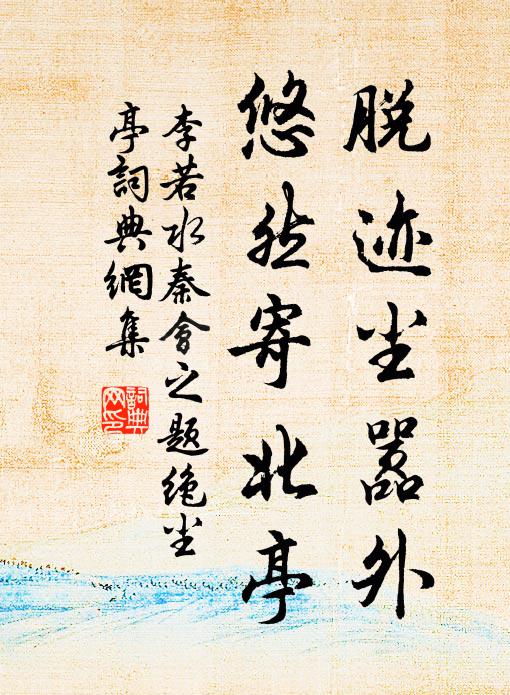 脱迹尘嚣外
悠然寄北亭
李若水秦会之题绝尘
亭词典網集
詞典网印